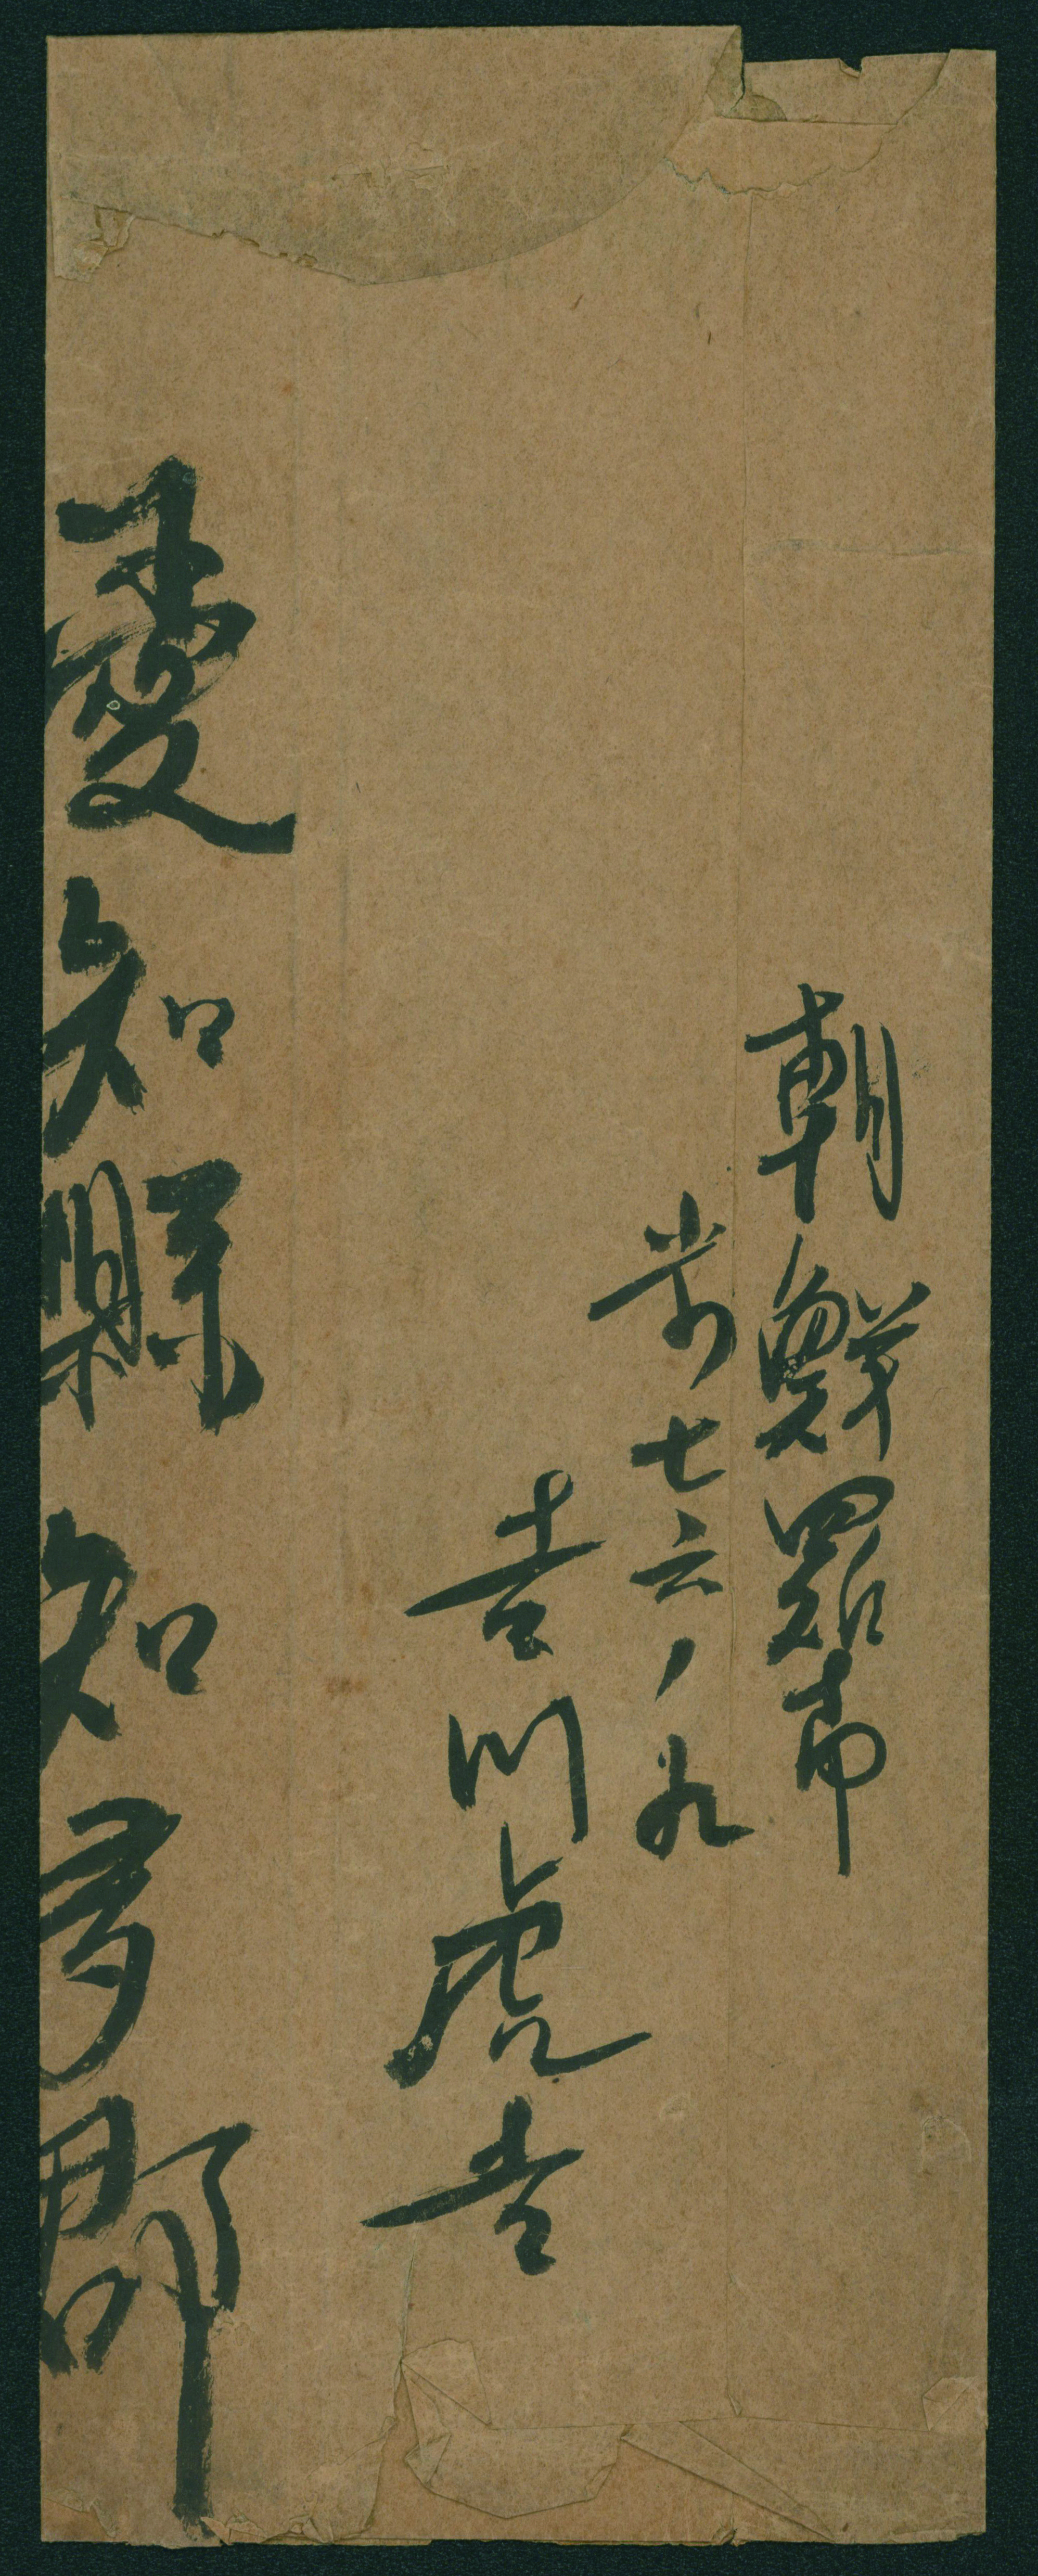 朝鮮羅南
歩七六ノ九
吉川虎吉
愛知縣知多郡